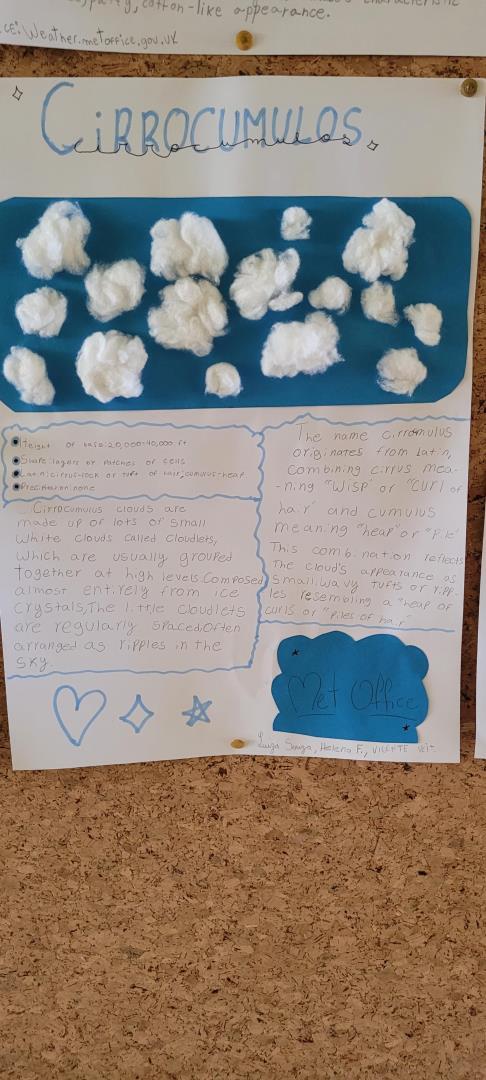 cotton-like appearance.
Weather.metoffice.gov.uk
CiRROCUMULOS
cirrocumulos
Height of base:20,000-40,000 ft
Shape:layers or patches of cells
Latin:cirrus-lock or tuft of hair;cumulus-heap
Precipitation:none
Cirrocumulus clouds are
made up of lots of small
white clouds called cloudlets,
which are usually grouped
together at high levels.Composed
almost entirely from ice
crystals,The little cloudlets
are regularly spaced,often
arranged as ripples in the
sky.
The name
originates from Latin,
combining cirrus mea-
-ning "Wisp" or "curl of
hair" and cumulus
meaning "heap" or "pile"
This combination reflects
The cloud's appearance as
small,wavy tufts or ripp-
les resembling a "heap of
curls or "piles of hair"
Met Office
Luiza Helena F., VICENTE